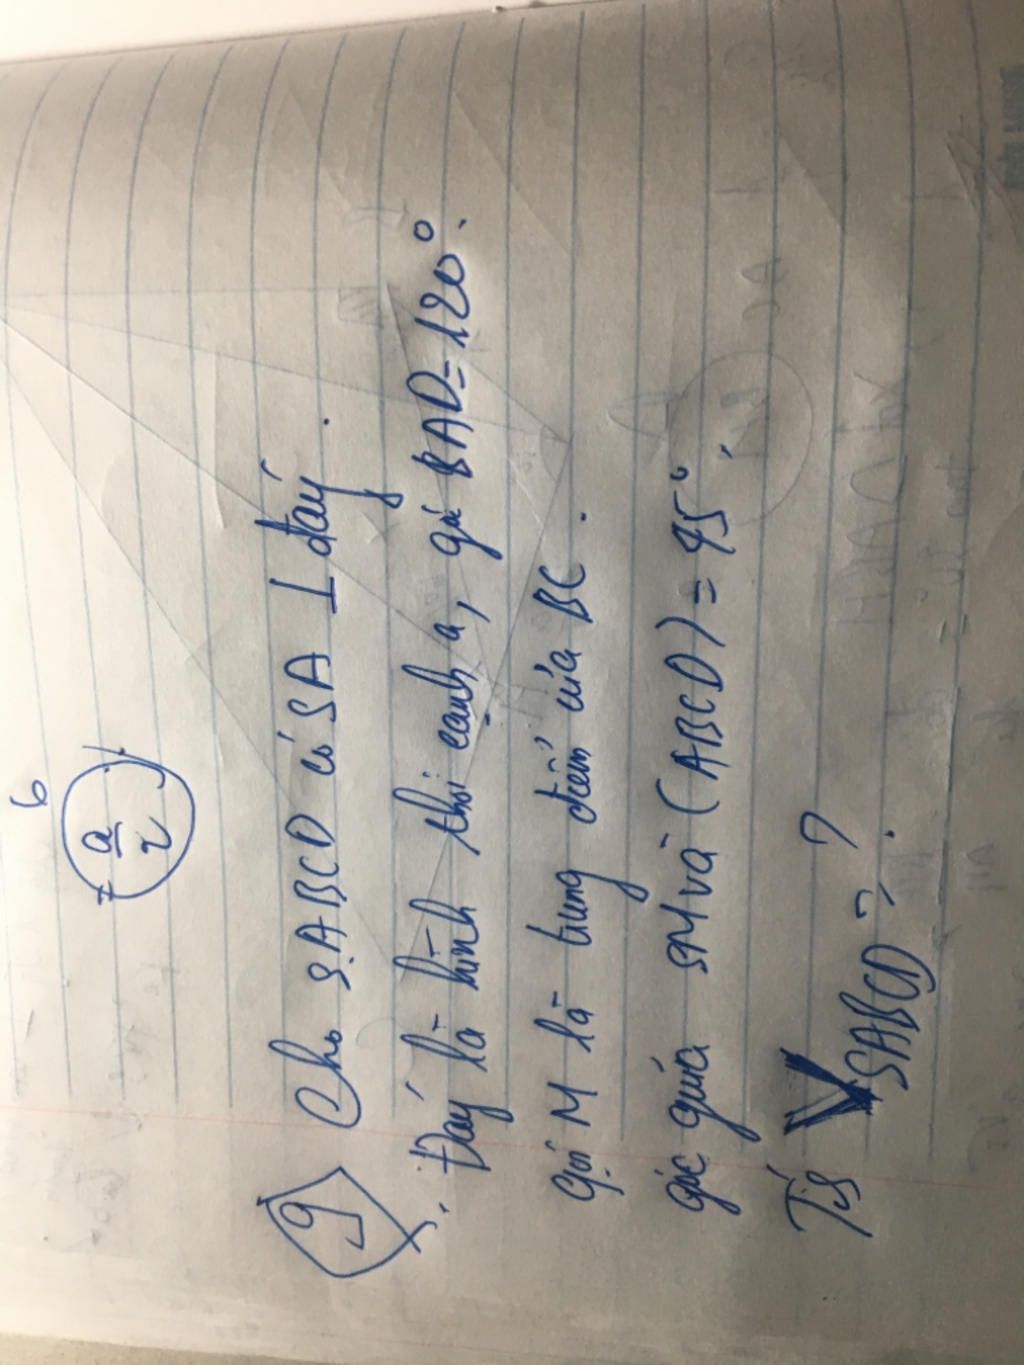 6
= a/2
9 Cho S.ABCD có SA ⊥ đáy.
. Đáy là hình thoi cạnh a, góc BAD = 120°.
gọi M là trung điểm của BC.
góc giữa SM và (ABCD) = 45°.
Tìs V SABCD = ?